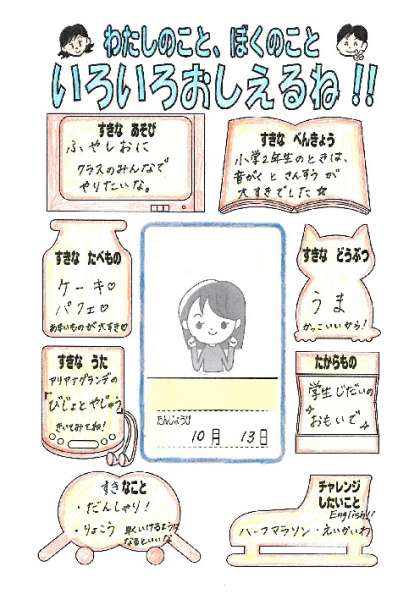 わたしのこと、ぼくのこと
いろいろおしえるね!!
すきな あそび
ふやしおに
クラスのみんなで
やりたいな。
すきな べんきょう
小学2年生のときは、
音がくと さんすう が
大すきでした☆
すきな たべもの
ケーキ♡
パフェ♡
あまいものが大すき♡
すきな どうぶつ
うま
かっこいいから!
すきな うた
アリアナグランデの
「びじょとやじゅう」
きいてみてね!
たんじょうび
10月 13日
たからもの
学生じだいの
おもいで
すきなこと
・だんしゃり!
・りょこう 早くいけるように
なるといいな
チャレンジ
したいこと
English!!
ハーフマラソン・えいかいわ